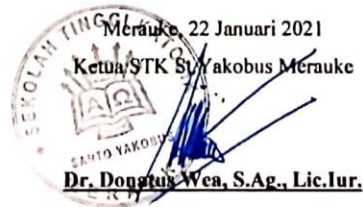 Merauke, 22 Januari 2021
Ketua STK St. Yakobus Merauke
SEKOLAH TINGGI KATOLIK
ΑΩ
SANTO YAKOBUS
Dr. Donatus Wea, S.Ag., Lic.Iur.